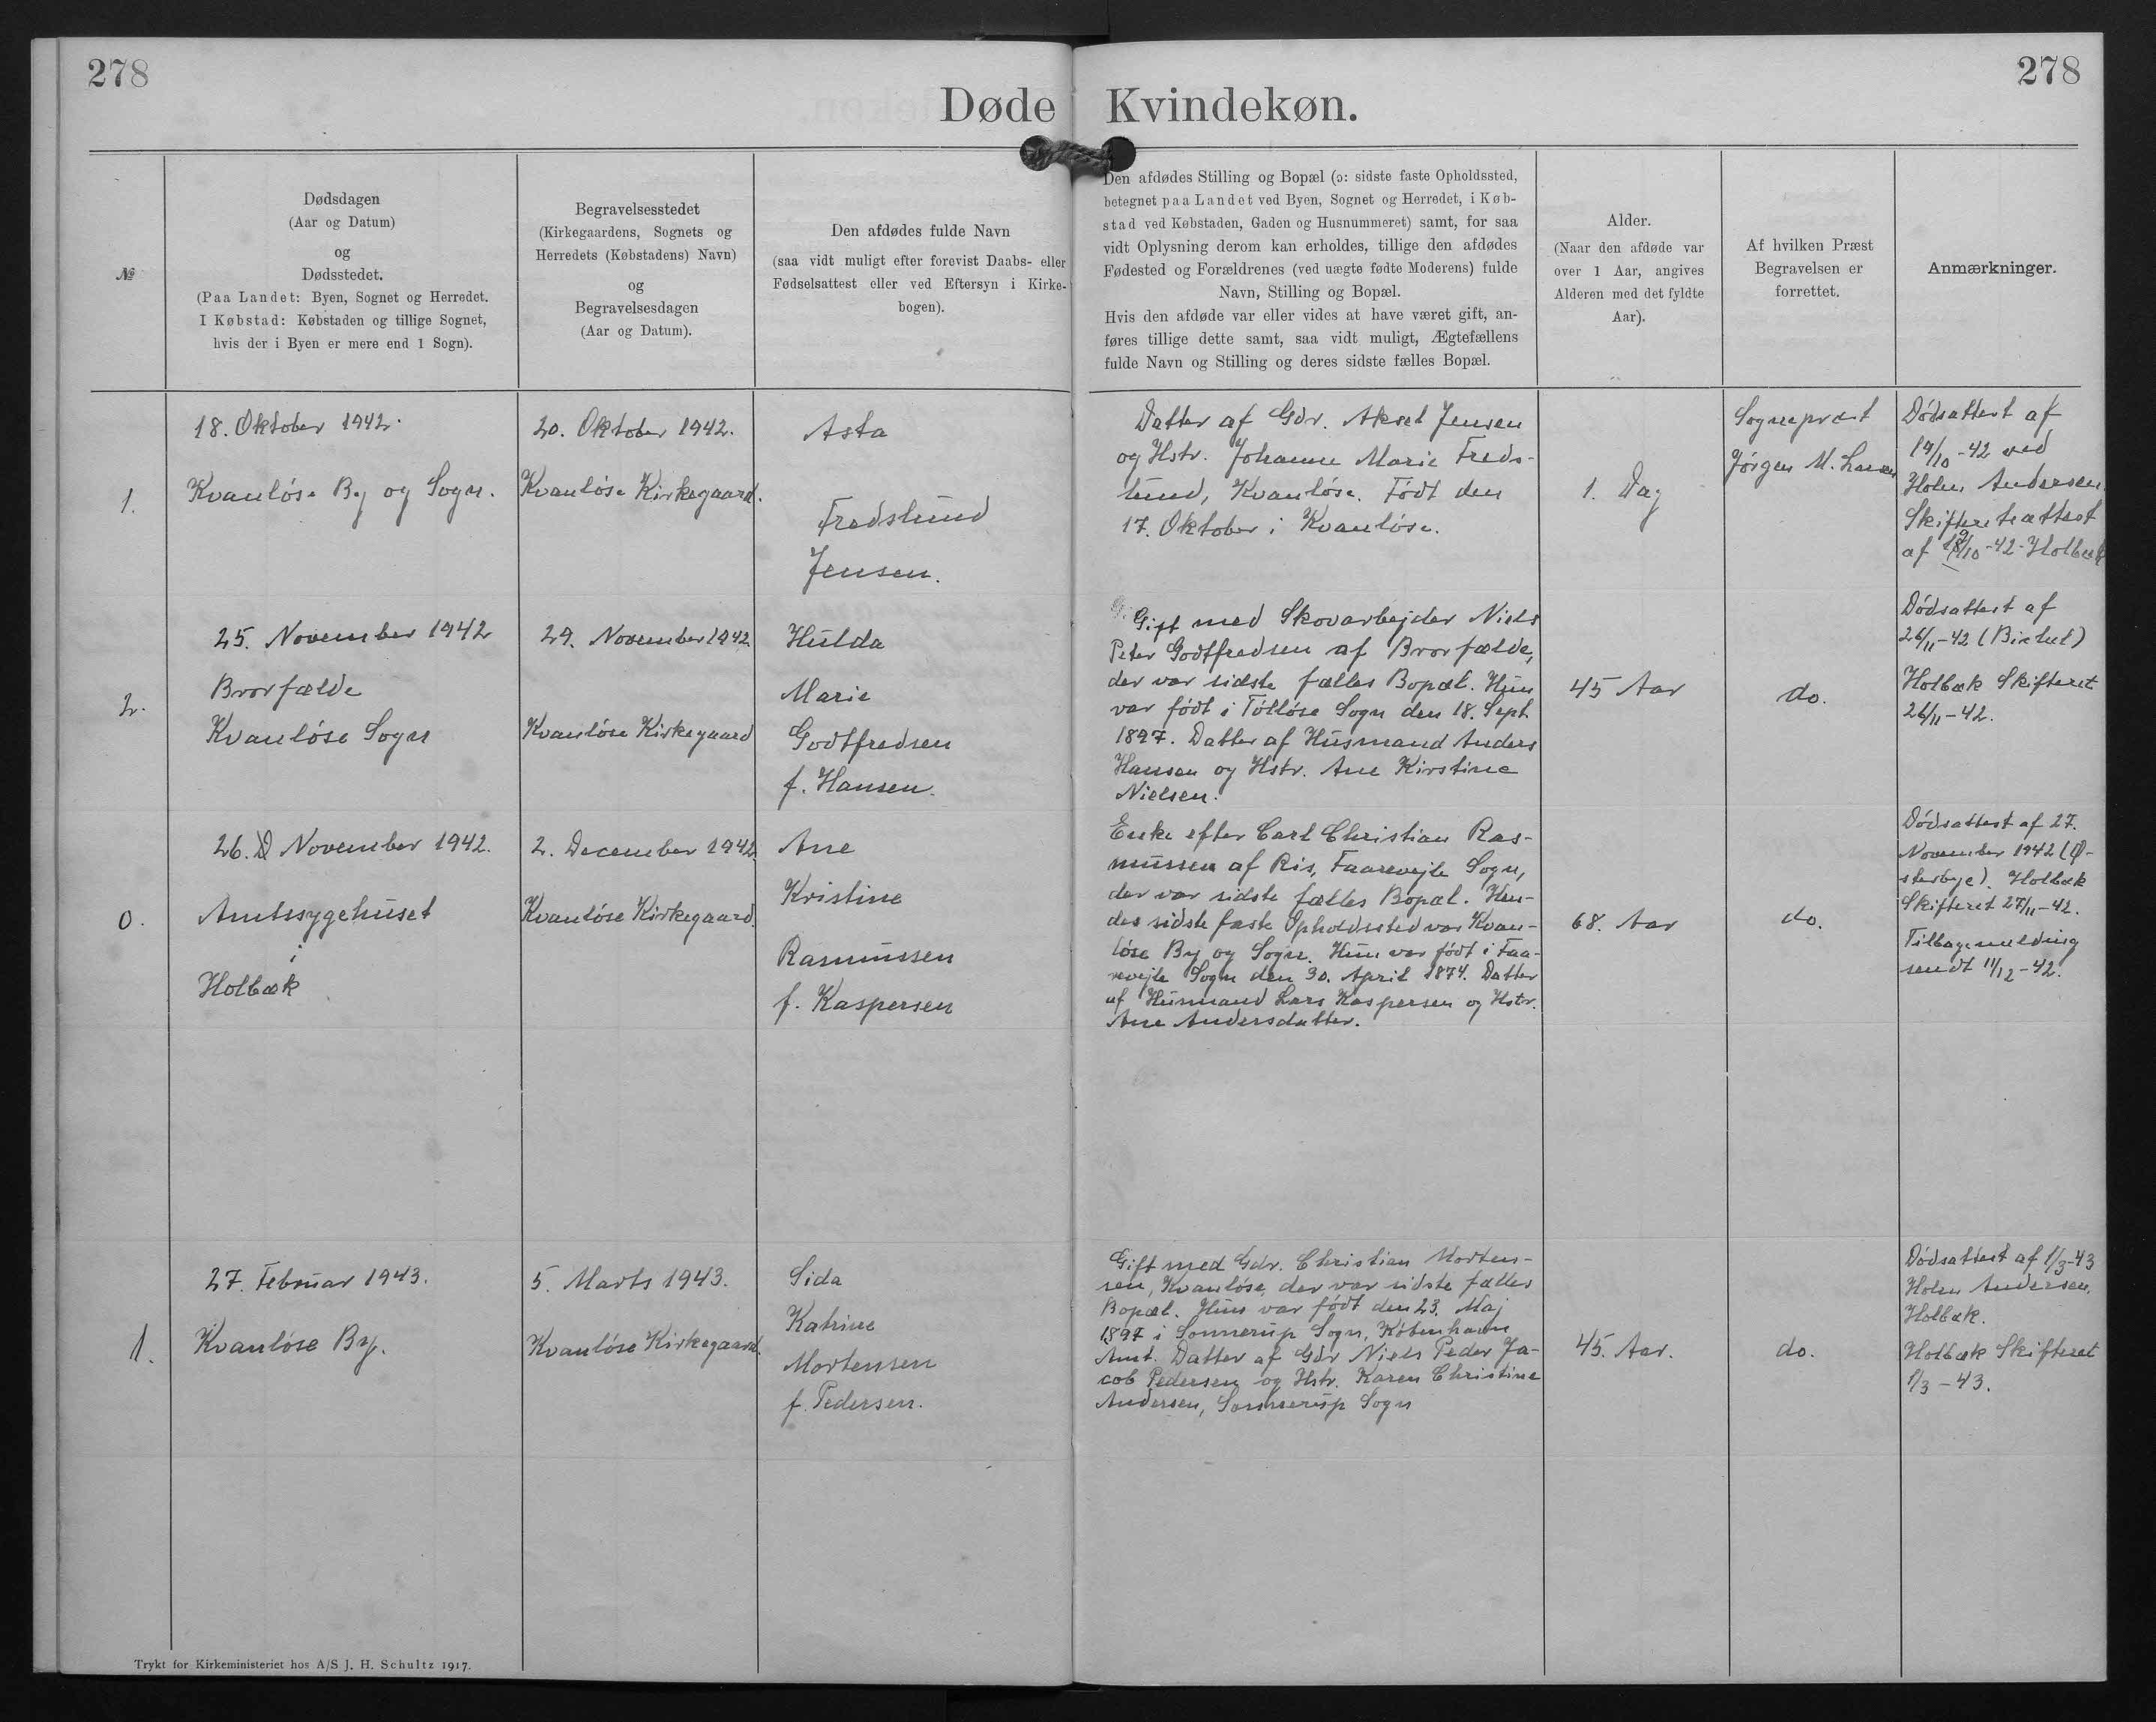 278
278
Døde Kvindekøn.
№
Dødsdagen
(Aar og Datum)
og
Dødsstedet.
(Paa Landet: Byen, Sognet og Herredet.
I Købstad: Købstaden og tillige Sognet,
hvis der i Byen er mere end 1 Sogn).
Begravelsesstedet
(Kirkegaardens, Sognets og
Herredets (Købstadens) Navn)
og
Begravelsesdagen
(Aar og Datum).
Den afdødes fulde Navn
(saa vidt muligt efter forevist Daabs- eller
Fødselsattest eller ved Eftersyn i Kirke-
bogen).
Den afdødes Stilling og Bopæl (ɔ: sidste faste Opholdssted,
betegnet paa Landet ved Byen, Sognet og Herredet, i Køb-
stad ved Købstaden, Gaden og Husnummeret) samt, for saa
vidt Oplysning derom kan erholdes, tillige den afdødes
Fødested og Forældrenes (ved uægte fødte Moderens) fulde
Navn, Stilling og Bopæl.
Hvis den afdøde var eller vides at have været gift, an-
føres tillige dette samt, saa vidt muligt, Ægtefællens
fulde Navn og Stilling og deres sidste fælles Bopæl.
Alder.
(Naar den afdøde var
over 1 Aar, angives
Alderen med det fyldte
Aar).
Af hvilken Præst
Begravelsen er
forrettet.
Anmærkninger.
1.
18. Oktober 1942.
Kvanløse By og Sogn.
20. Oktober 1942.
Kvanløse Kirkegaard.
Asta
Fredslund
Jensen.
Datter af Gdr. Aksel Jensen
og Hstr. Johanne Marie Freds-
lund, Kvanløse. Født den
17. Oktober i Kvanløse.
1. Dag
Sognepræst
Jørgen M. Larsen
Dødsattest af
19/10-42 ved
Holm Andersen.
Skifteretsattest
af 19/10-42-Holbæk
2.
25. November 1942
Brorfælde
Kvanløse Sogn
29. November 1942.
Kvanløse Kirkegaard
Hulda
Marie
Godtfredsen
f. Hansen.
Gift med Skovarbejder Niels
Peter Godtfredsen af Brorfælde,
der var sidste fælles Bopæl. Hun
var født i Tølløse Sogn den 18. Sept.
1897. Datter af Husmand Anders
Hansen og Hstr. Ane Kirstine
Nielsen.
45 Aar
do.
Dødsattest af
26/11-42 (Birket)
Holbæk Skifteret
26/11-42.
0.
26. November 1942.
Amtssygehuset
i
Holbæk
2. December 1942.
Kvanløse Kirkegaard.
Ane
Kristine
Rasmussen
f. Kaspersen
Enke efter Carl Christian Ras-
mussen af Ris, Faarevejle Sogn,
der var sidste fælles Bopæl. Hen-
des sidste faste Opholdssted var Kvan-
løse By og Sogn. Hun var født i Faa-
revejle Sogn den 30. April 1874. Datter
af Husmand Lars Kaspersen og Hstr.
Ane Andersdatter.
68. Aar
do.
Dødsattest af 27.
November 1942 (Ø-
sterbye). Holbæk
Skifteret 27/11-42.
Tilbagemelding
sendt 11/12-42.
1.
27. Februar 1943.
Kvanløse By.
5. Marts 1943.
Kvanløse Kirkegaard.
Sida
Katrine
Mortensen
f. Pedersen.
Gift med Gdr. Christian Morten-
sen, Kvanløse, der var sidste fælles
Bopæl. Hun var født den 23. Maj
1897 i Sonnerup Sogn, København
Amt. Datter af Gdr. Niels Peder Ja-
cob Pedersen og Hstr. Karen Christine
Andersen, Sonnerup Sogn
45. Aar.
do.
Dødsattest af 1/3-43
Holm Andersen,
Holbæk.
Holbæk Skifteret
1/3-43.
Trykt for Kirkeministeriet hos A/S J. H. Schultz 1917.